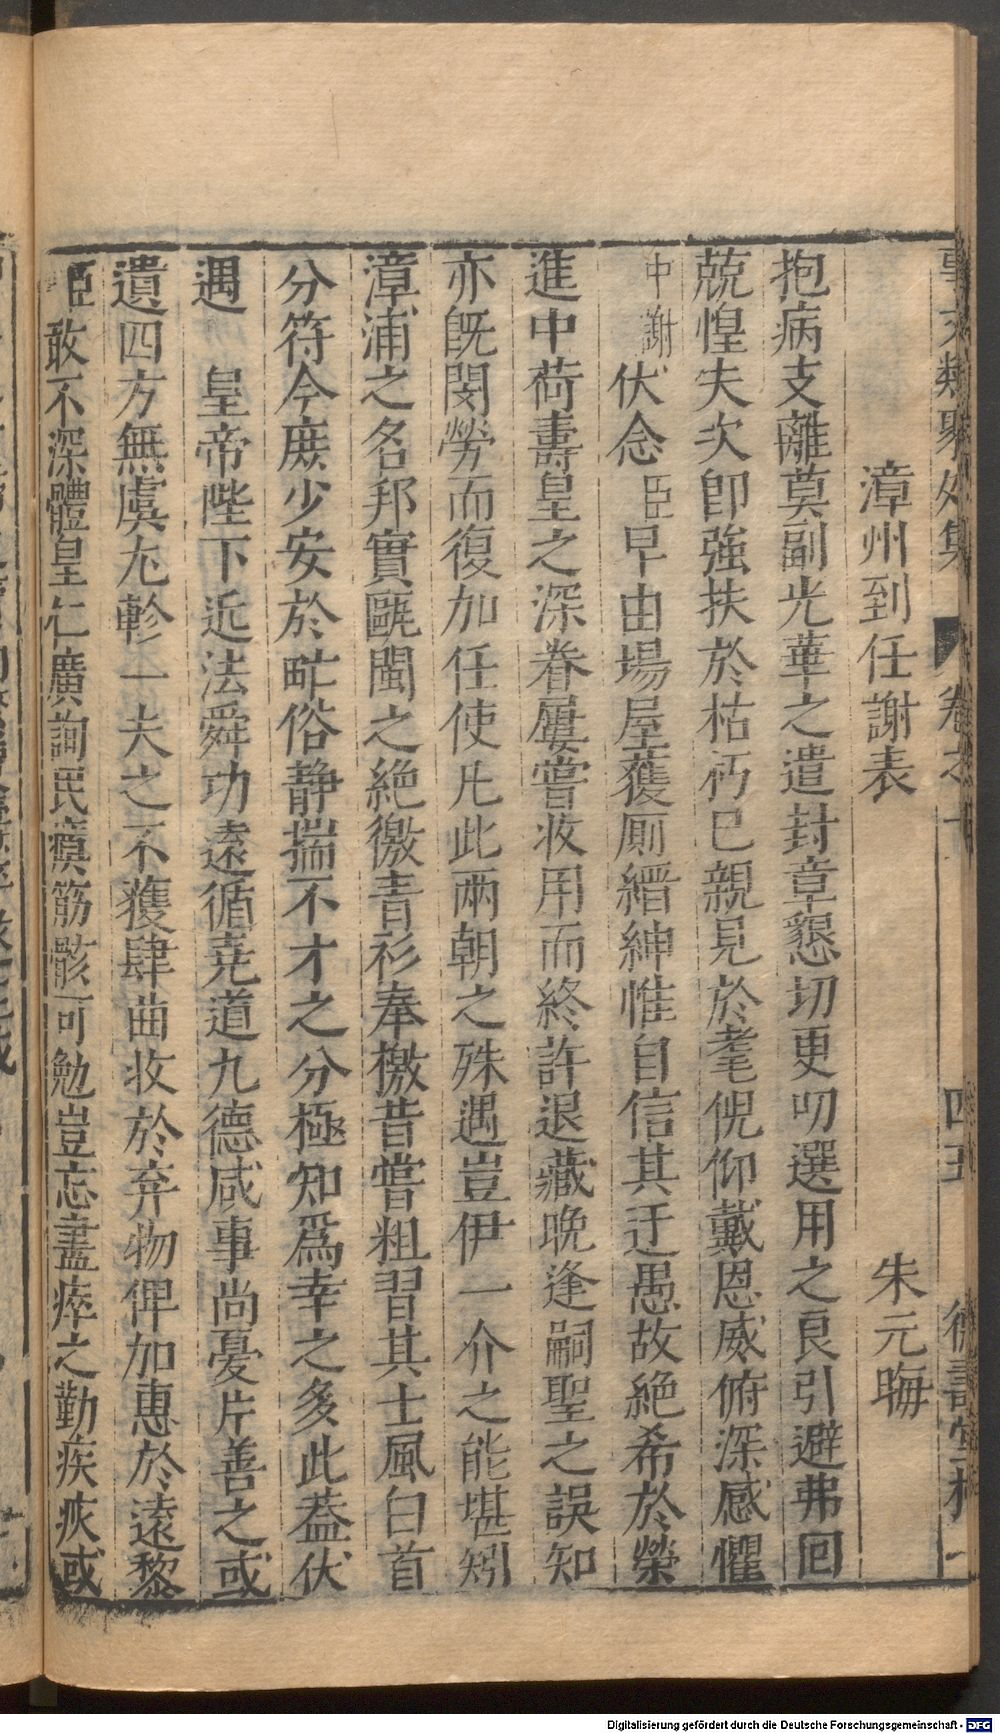 事文類聚外集 卷之十 四五 德壽堂梓
漳州到任謝表 朱元晦
抱病支離莫副光華之遣封章懇切更叨選用之良引避弗回
兢惶失次卽強扶於枯朽已親見於耄倪仰戴恩威俯深感懼
中謝伏念臣早由場屋獲厠縉紳惟自信其迂愚故絶希於榮
進中荷壽皇之深眷屢嘗收用而終許退藏晩逢嗣聖之誤知
亦旣閔勞而復加任使凡此兩朝之殊遇豈伊一介之能堪矧
漳浦之名邦實甌閩之絶徼青衫奉檄昔嘗粗習其士風白首
分符今庶少安於甿俗静揣不才之分極知爲幸之多此葢伏
遇 皇帝陛下近法舜功遠循堯道九德咸事尚憂片善之或
遺四方無虞尢軫一夫之不獲肆曲收於弃物俾加惠於遠黎
臣敢不深體皇仁廣詢民瘼筋骸可勉豈忘盡瘁之勤疾疢或
Digitalisierung gefördert durch die Deutsche Forschungsgemeinschaft - DFG